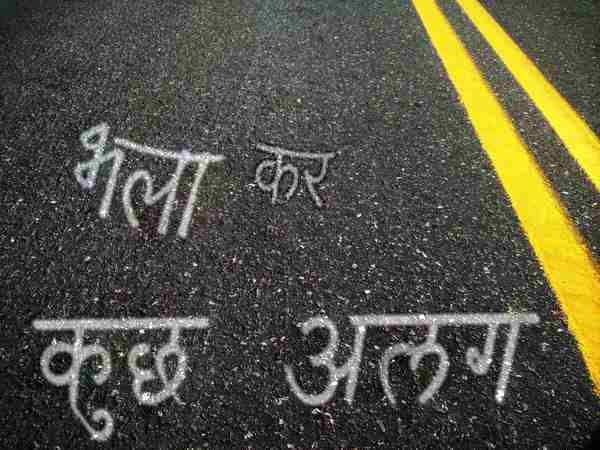 भला कर
कुछ अलग